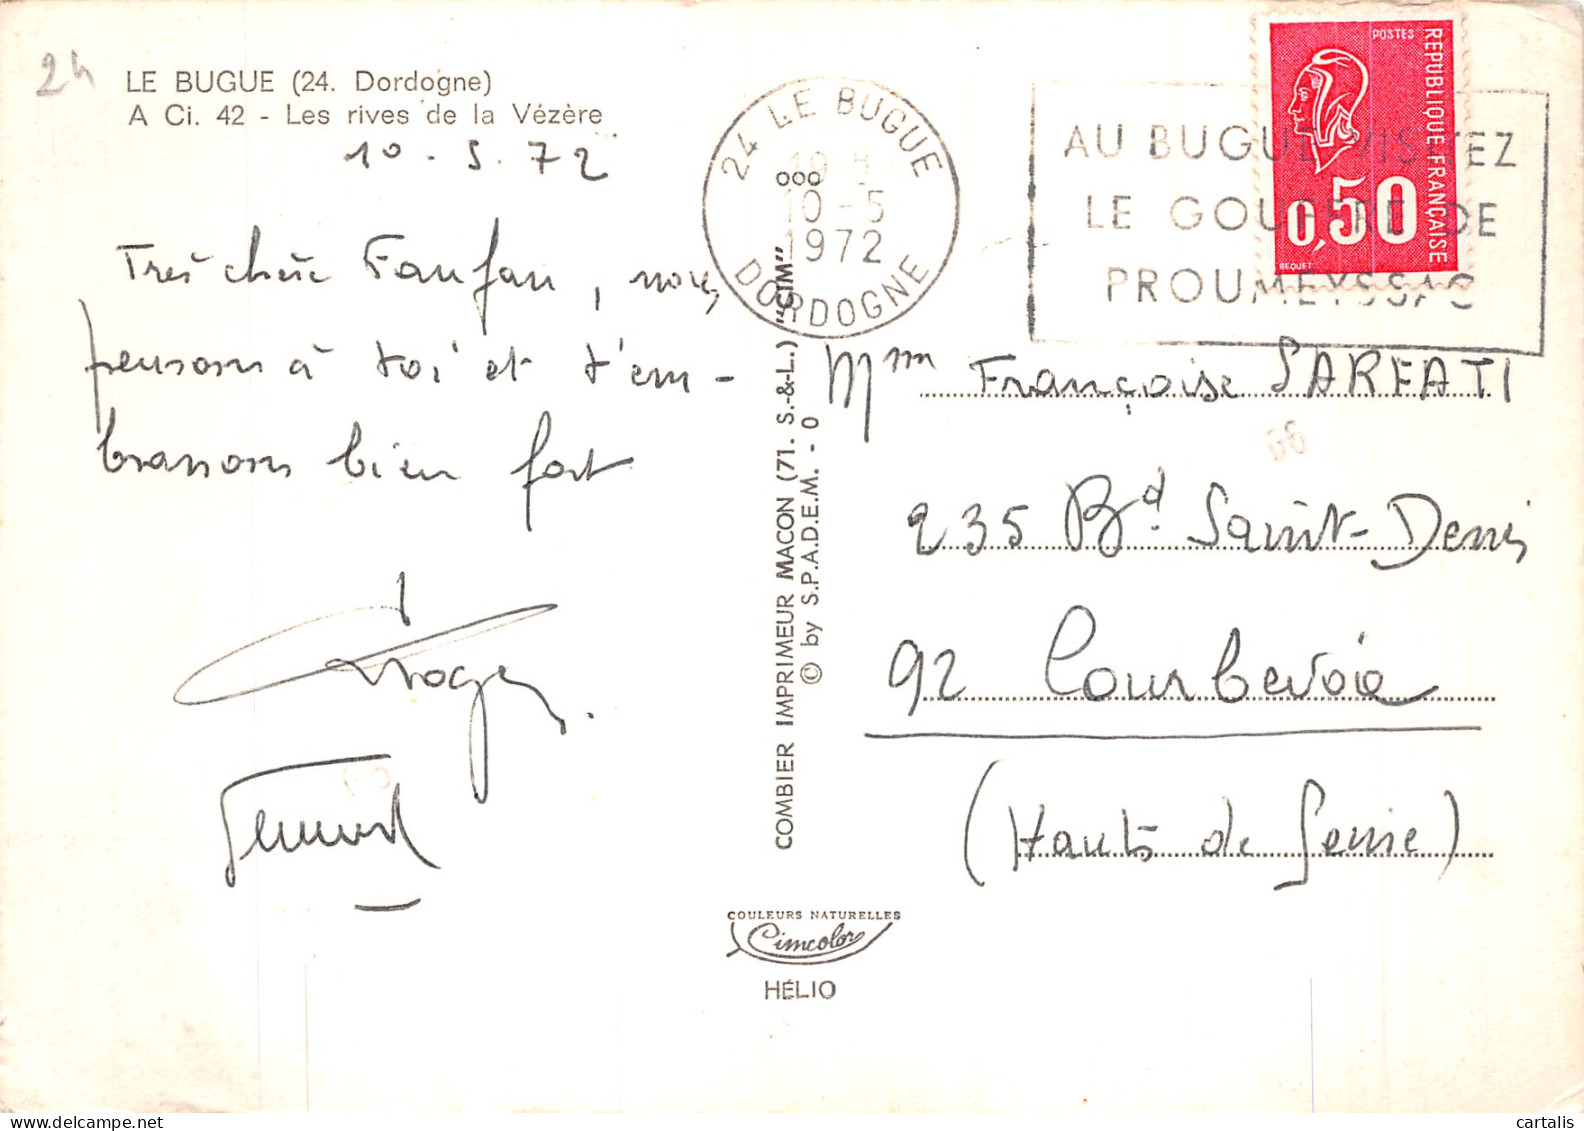 24
LE BUGUE (24. Dordogne)
A Ci. 42 - Les rives de la Vézère
10 - 5. 72
Très chère Fanfan, nous
pensons à toi et t'em-
brassons bien fort
Roger
24 LE BUGUE
10-5
1972
DORDOGNE
AU BUGUE VISITEZ
LE GOUFFRE DE
PROUMEYSSAC
POSTES
REPUBLIQUE FRANÇAISE
0,50
BEQUET
COMBIER IMPRIMEUR MACON (71. S.-&-L.) "CIM"
© by S.P.A.D.E.M. - 0
Mme Françoise SARFATI
235 Bd Saint-Denis
92 Courbevoie
(Hauts de Seine)
COULEURS NATURELLES
Cimcolor
HÉLIO
cartalis